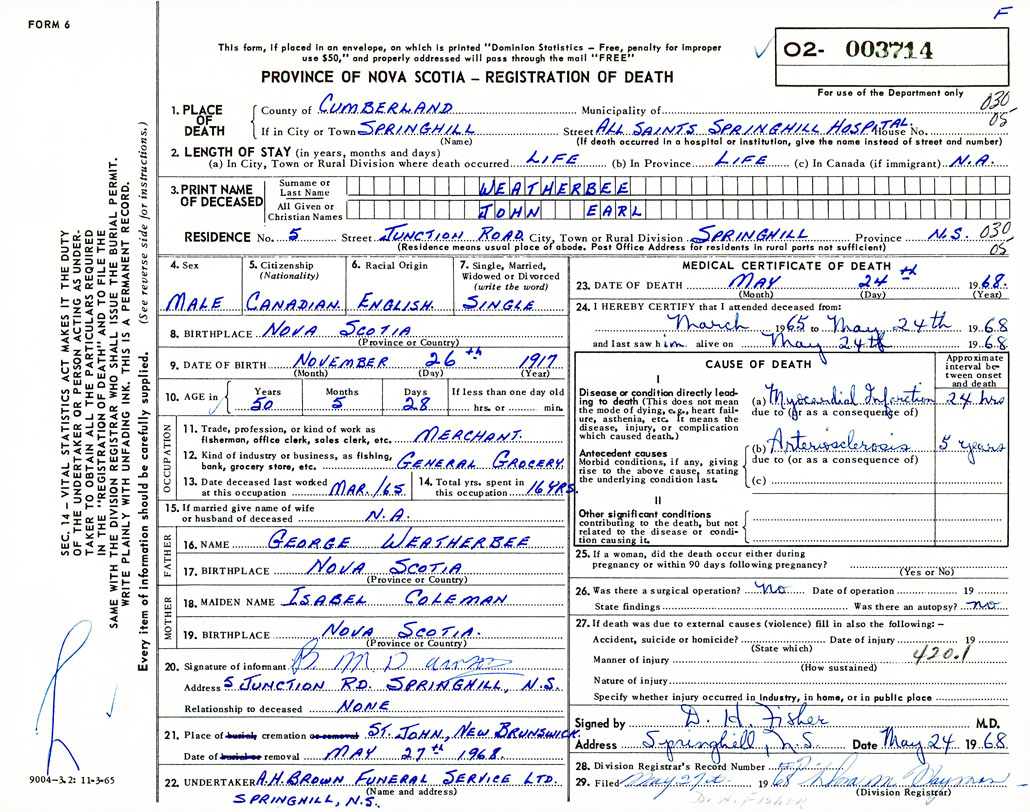 F
FORM 6
This form, if placed in an envelope, on which is printed "Dominion Statistics – Free, penalty for improper
use $50," and properly addressed will pass through the mail "FREE"
O2- 003714
For use of the Department only
PROVINCE OF NOVA SCOTIA – REGISTRATION OF DEATH
SEC. 14 – VITAL STATISTICS ACT MAKES IT THE DUTY
OF THE UNDERTAKER OR PERSON ACTING AS UNDER-
TAKER TO OBTAIN ALL THE PARTICULARS REQUIRED
IN THE "REGISTRATION OF DEATH" AND TO FILE THE
SAME WITH THE DIVISION REGISTRAR WHO SHALL ISSUE THE BURIAL PERMIT.
WRITE PLAINLY WITH UNFADING INK. THIS IS A PERMANENT RECORD.
Every item of information should be carefully supplied. (See reverse side for instructions.)
1. PLACE OF DEATH
County of CUMBERLAND Municipality of 030
If in City or Town SPRINGHILL Street ALL SAINTS SPRINGHILL HOSPITAL. House No. 05
(Name) (If death occurred in a hospital or institution, give the name instead of street and number)
2. LENGTH OF STAY (in years, months and days)
(a) In City, Town or Rural Division where death occurred LIFE (b) In Province LIFE (c) In Canada (if immigrant) N.A.
3. PRINT NAME OF DECEASED
Surname or Last Name WEATHERBEE
All Given or Christian Names JOHN EARL
RESIDENCE No. 5 Street JUNCTION ROAD City, Town or Rural Division SPRINGHILL Province N.S. 030
(Residence means usual place of abode. Post Office Address for residents in rural parts not sufficient) 05
4. Sex MALE
5. Citizenship (Nationality) CANADIAN.
6. Racial Origin ENGLISH.
7. Single, Married, Widowed or Divorced (write the word) SINGLE
8. BIRTHPLACE NOVA SCOTIA
(Province or Country)
9. DATE OF BIRTH NOVEMBER 26th 1917
(Month) (Day) (Year)
10. AGE in Years 50 Months 5 Days 28 If less than one day old hrs. or min.
OCCUPATION
11. Trade, profession, or kind of work as
fisherman, office clerk, sales clerk, etc. MERCHANT.
12. Kind of industry or business, as fishing,
bank, grocery store, etc. GENERAL GROCERY.
13. Date deceased last worked
at this occupation MAR./65
14. Total yrs. spent in
this occupation 16 YRS.
15. If married give name of wife
or husband of deceased N.A.
FATHER
16. NAME GEORGE WEATHERBEE
17. BIRTHPLACE NOVA SCOTIA
(Province or Country)
MOTHER
18. MAIDEN NAME ISABEL COLEMAN
19. BIRTHPLACE NOVA SCOTIA.
(Province or Country)
20. Signature of informant
Address 5 JUNCTION RD. SPRINGHILL, N.S.
Relationship to deceased NONE
21. Place of burial, cremation or removal ST. JOHN, NEW BRUNSWICK.
Date of burial or removal MAY 27th 1968.
22. UNDERTAKER A.H. BROWN FUNERAL SERVICE LTD.
(Name and address)
SPRINGHILL, N.S.
MEDICAL CERTIFICATE OF DEATH
23. DATE OF DEATH MAY 24th 1968.
(Month) (Day) (Year)
24. I HEREBY CERTIFY that I attended deceased from:
March 1965 to May 24th 1968
and last saw him alive on May 24th 1968
CAUSE OF DEATH
Approximate interval between onset and death
I
Disease or condition directly lead-
ing to death (This does not mean
the mode of dying, e.g., heart fail-
ure, asthenia, etc. It means the
disease, injury, or complication
which caused death.)
(a) Myocardial Infarction 24 hrs
due to (or as a consequence of)
Antecedent causes
Morbid conditions, if any, giving
rise to the above cause, stating
the underlying condition last.
(b) Arteriosclerosis 5 years
due to (or as a consequence of)
(c)
II
Other significant conditions
contributing to the death, but not
related to the disease or condi-
tion causing it.
25. If a woman, did the death occur either during
pregnancy or within 90 days following pregnancy?
(Yes or No)
26. Was there a surgical operation? No Date of operation 19
State findings Was there an autopsy? no
27. If death was due to external causes (violence) fill in also the following: –
Accident, suicide or homicide? Date of injury 19
(State which)
Manner of injury 420.1
(How sustained)
Nature of injury
Specify whether injury occurred in Industry, in home, or in public place
Signed by D. H. Fisher M.D.
Address Springhill, N.S. Date May 24 1968.
28. Division Registrar's Record Number
29. Filed May 27th 1968
(Division Registrar)
9004-3.2: 11-3-65
Dr. H. FISHER